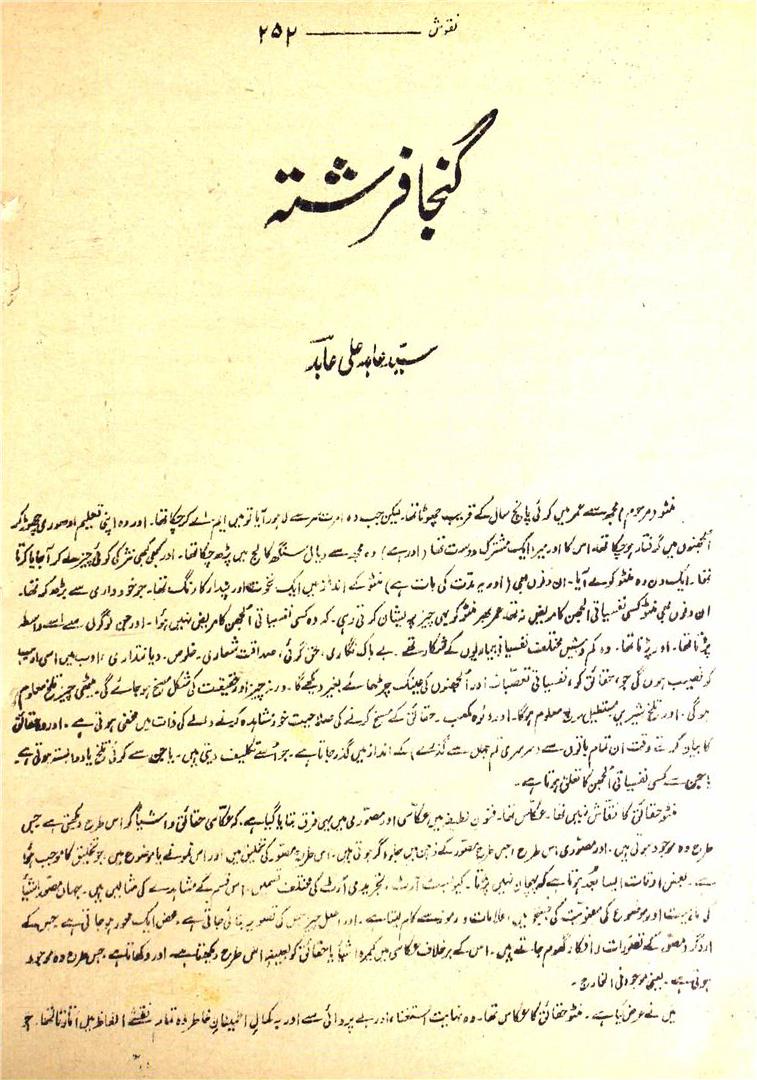 نقوش ——— ۲۵۲
گنجا فرشتہ
سیّد عابد علی عابدؔ
منٹو (مرحوم) مجھ سے عمر میں کوئی پانچ سال کے قریب چھوٹا تھا۔ لیکن جب وہ امرت سر سے لاہور آیا تو میں ایم۔ اے کر چکا تھا۔ اور وہ اپنی تعلیم ادھوری چھوڑ کر
الجھنوں میں گرفتار ہو چکا تھا۔ اس کا اور میرا ایک مشترک دوست تھا (اور ہے) وہ مجھ سے دیال سنگھ کالج میں پڑھ چکا تھا۔ اور کبھی کبھی نثر کی کوئی چیز لے کر آ جایا کرتا
تھا۔ ایک دن وہ منٹو کو لے آیا۔ ان دنوں بھی (اور یہ مدت کی بات ہے) منٹو کے انداز میں ایک نخوت اور پندار کا رنگ تھا۔ جو خودداری سے بڑھ کر تھا۔
ان دنوں بھی منٹو کسی نفسیاتی الجھن کا مریض نہ تھا۔ عمر بھر منٹو کو یہی چیز پریشان کرتی رہی۔ کہ وہ کسی نفسیاتی الجھن کا مریض نہیں ہوا۔ اور جن لوگوں سے اسے واسطہ
پڑتا تھا۔ اور پڑتا تھا۔ وہ کم و بیش مختلف نفسیاتی بیماریوں کے شکار تھے۔ بے باک نگاری، حق گوئی، صداقت شعاری۔ خلوص۔ دیانتداری، ادب میں اسی ادیب
کو نصیب ہوں گی جو، حقائق کو، نفسیاتی تعصبات اور الجھنوں کی عینک چڑھائے بغیر دیکھے گا۔ ورنہ چیز اور حقیقت کی شکل مسخ ہو جائے گی۔ میٹھی چیز تلخ معلوم
ہو گی۔ اور تلخ شیریں مستطیل مربع معلوم ہو گا۔ اور دائرہ مکعب۔ حقائق کے مسخ کرنے کی صلاحیت خود مشاہدہ کرنے والے کی ذات میں مخفی ہوتی ہے۔ اور وہ حقائق
کا بیان کرتے وقت ان تمام باتوں سے (سرسری تم جہان سے گذرے) کے انداز میں گذر جاتا ہے۔ جو اسے تکلیف دیتی ہیں۔ یا جن سے کوئی تلخ یاد وابستہ ہوتی ہے
یا جن سے کسی نفسیاتی الجھن کا تعلق ہوتا ہے۔
منٹو حقائق کا نقاش نہیں تھا۔ عکاس تھا۔ فنون لطیفہ میں عکاسی اور مصوری میں یہی فرق بتایا گیا ہے۔ کہ عکاسی حقائق و اشیا کو اس طرح دیکھتی ہے جس
طرح وہ موجود ہوتی ہیں۔ اور مصوری اس طرح، جس طرح مصور کے ذہن میں جلوہ گر ہوتی ہیں۔ اس طرح مصور کی تخلیق میں اور اس نمونے یا موضوع میں۔ جو تخلیق کا موجب ہوتا
ہے۔ بعض اوقات ایسا بُعد ہوتا ہے کہ پہچان نہیں پڑتا۔ کیوبسٹ آرٹ۔ تجریدی آرٹ کی مختلف قسمیں، اس قسم کے مشاہدے کی مثالیں ہیں۔ یہاں مصور اشیا
کی ماہیت اور موضوع کی معنویت کی جستجو میں، علامات و رموز سے کام لیتا ہے۔ اور اصل چیز جس کی تصویر بنائی جاتی ہے۔ محض ایک محور ہو جاتی ہے۔ جس کے
اردگرد مصور کے تصورات و افکار گھوم جاتے ہیں۔ اس کے برخلاف عکاسی میں کیمرہ اشیا یا حقائق کو بعینہٖ اس طرح دیکھتا ہے۔ اور دکھاتا ہے۔ جس طرح وہ موجود
ہوتی ہے۔ یعنی موجود فی الخارج۔
میں نے عرض کیا ہے۔ منٹو حقائق کا عکاس تھا۔ وہ نہایت استغناء اور بے پروائی سے اور بہ کمال اطمینانِ خاطر وہ تمام نقشے الفاظ میں اتارتا تھا۔ جو